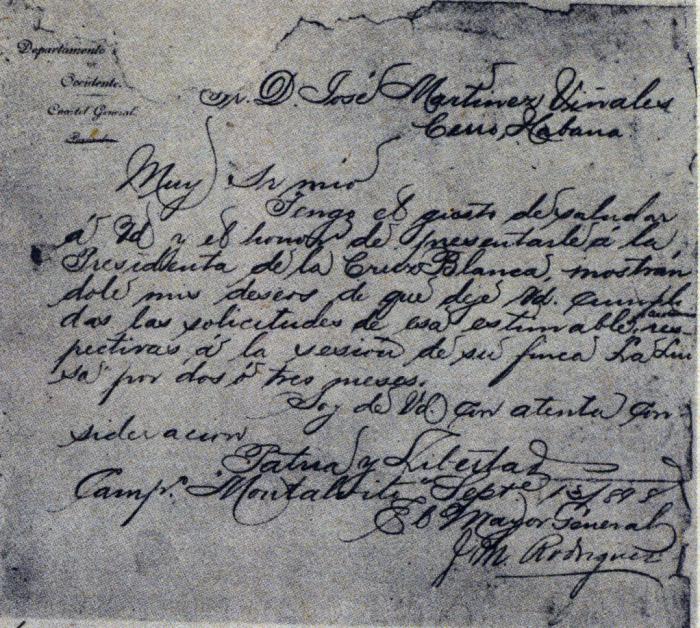 Departamento
Occidente.
Cuartel General.
Sr. D. José Martinez Viñales
Cerro, Habana.
Muy Sr mio
Tengo el gusto de saludar
á Vd y el honor de presentarle á la
Presidenta de la Cruz Blanca, mostrán
dole mis deseos de que deje Vd. cumpli
das las solicitudes de esa estimable res-
pectivas á la sesion de su finca La Lui
sa por dos ó tres meses.
Soy de Vd. con atenta con
sideracion
Patria y Libertad
Camp.º Montalvito Septe 13/898
El Mayor General
J. M. Rodriguez